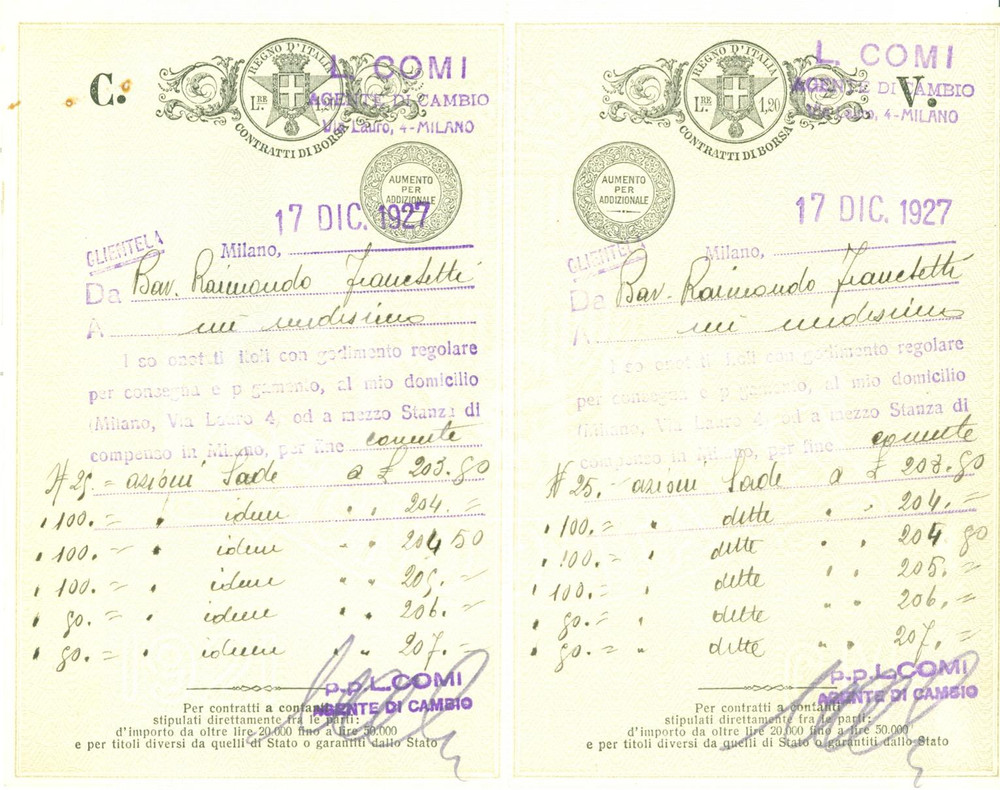 C.
REGNO D'ITALIA
LRE 1,20
CONTRATTI DI BORSA
L. COMI
AGENTE DI CAMBIO
Via Lauro, 4-MILANO
AUMENTO
PER
ADDIZIONALE
17 DIC. 1927
CLIENTELA
Milano,
Da Bar. Raimondo Franchetti
A me medesimo
con godimento regolare
per consegna e p gamento, al mio domicilio
(Milano, Via Lauro 4, od a mezzo Stanza di
compenso in Milano, per fine corrente
N 25. = azioni Sade a £ 203.50
" 100. = " idem " " 204. =
" 100. = " idem " " 204 50
" 100. = " idem " " 205. =
" 50. = " idem " " 206. =
" 50. = " idem " " 207. =
p.p. L. COMI
AGENTE DI CAMBIO
Per contratti a contanti
stipulati direttamente fra le parti:
d'importo da oltre lire 20.000 fino a lire 50.000
e per titoli diversi da quelli di Stato o garantiti dallo Stato
V.
REGNO D'ITALIA
LRE 1,20
CONTRATTI DI BORSA
L. COMI
AGENTE DI CAMBIO
Via Lauro, 4-MILANO
AUMENTO
PER
ADDIZIONALE
17 DIC. 1927
CLIENTELA
Milano,
Da Bar. Raimondo Franchetti
A me medesimo
con godimento regolare
per consegna e p gamento, al mio domicilio
(Milano, Via Lauro 4, od a mezzo Stanza di
compenso in Milano, per fine corrente
N 25. - azioni Sade a £ 203.50
" 100. = " dette " " 204. =
" 100. = " dette " " 204 50
" 100. = " dette " " 205. =
" 50. = " dette " " 206. =
" 50. = " dette " " 207. =
p.p. L. COMI
AGENTE DI CAMBIO
Per contratti a contanti
stipulati direttamente fra le parti:
d'importo da oltre lire 20.000 fino a lire 50.000
e per titoli diversi da quelli di Stato o garantiti dallo Stato